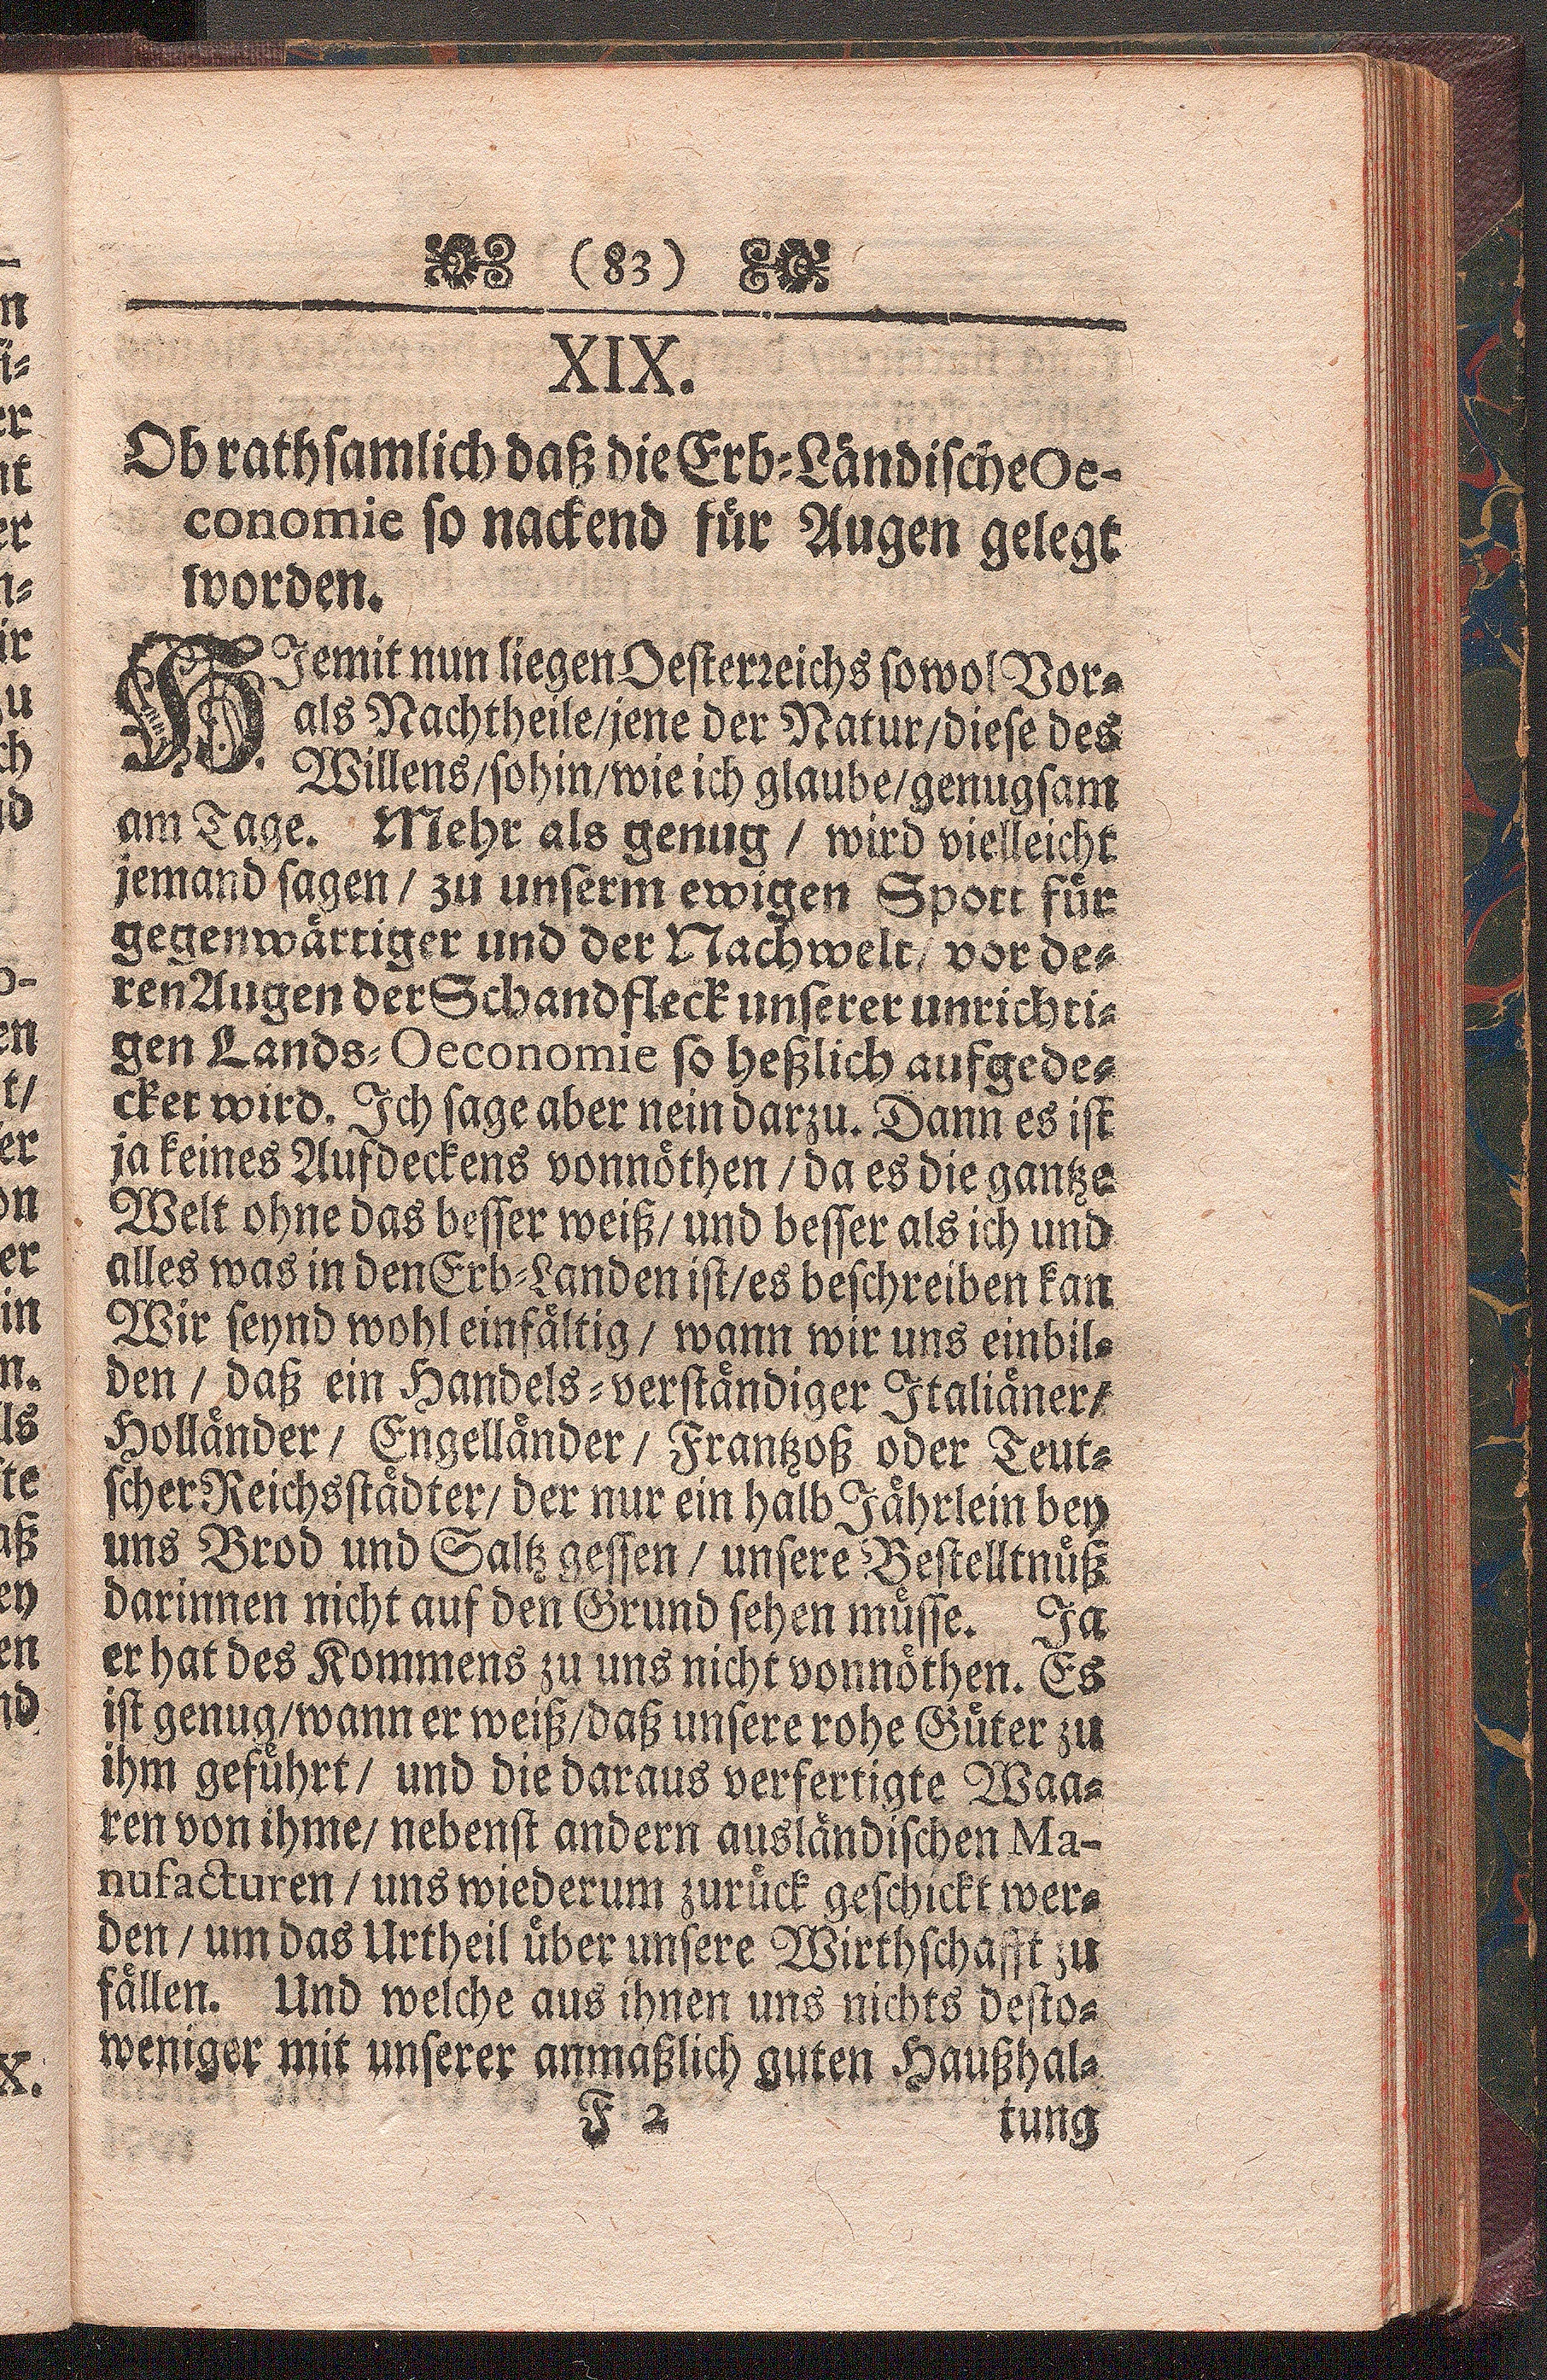 (83)
XIX.
Ob rathsamlich daß die Erb-Ländische Oe-
conomie so nackend für Augen gelegt
worden.
HIemit nun liegen Oesterreichs sowol Vor-
als Nachtheile/jene der Natur/diese des
Willens/sohin/wie ich glaube/genugsam
am Tage. Mehr als genug / wird vielleicht
jemand sagen / zu unserm ewigen Spott für
gegenwärtiger und der Nachwelt/ vor de-
ren Augen der Schandfleck unserer unrichti-
gen Lands-Oeconomie so heßlich aufgede-
cket wird. Ich sage aber nein darzu. Dann es ist
ja keines Aufdeckens vonnöthen / da es die gantze
Welt ohne das besser weiß/ und besser als ich und
alles was in den Erb-Landen ist/es beschreiben kan
Wir seynd wohl einfältig / wann wir uns einbil-
den / daß ein Handels-verständiger Italiäner/
Holländer / Engelländer / Frantzoß oder Teut-
scher Reichsstädter/ der nur ein halb Jährlein bey
uns Brod und Saltz gessen / unsere Bestelltnüß
darinnen nicht auf den Grund sehen müsse. Ja
er hat des Kommens zu uns nicht vonnöthen. Es
ist genug/wann er weiß/daß unsere rohe Güter zu
ihm geführt / und die daraus verfertigte Waa-
ren von ihme/ nebenst andern ausländischen Ma-
nufacturen / uns wiederum zurück geschickt wer-
den / um das Urtheil über unsere Wirthschafft zu
fällen. Und welche aus ihnen uns nichts desto-
weniger mit unserer anmaßlich guten Haußhal-
F 2 tung